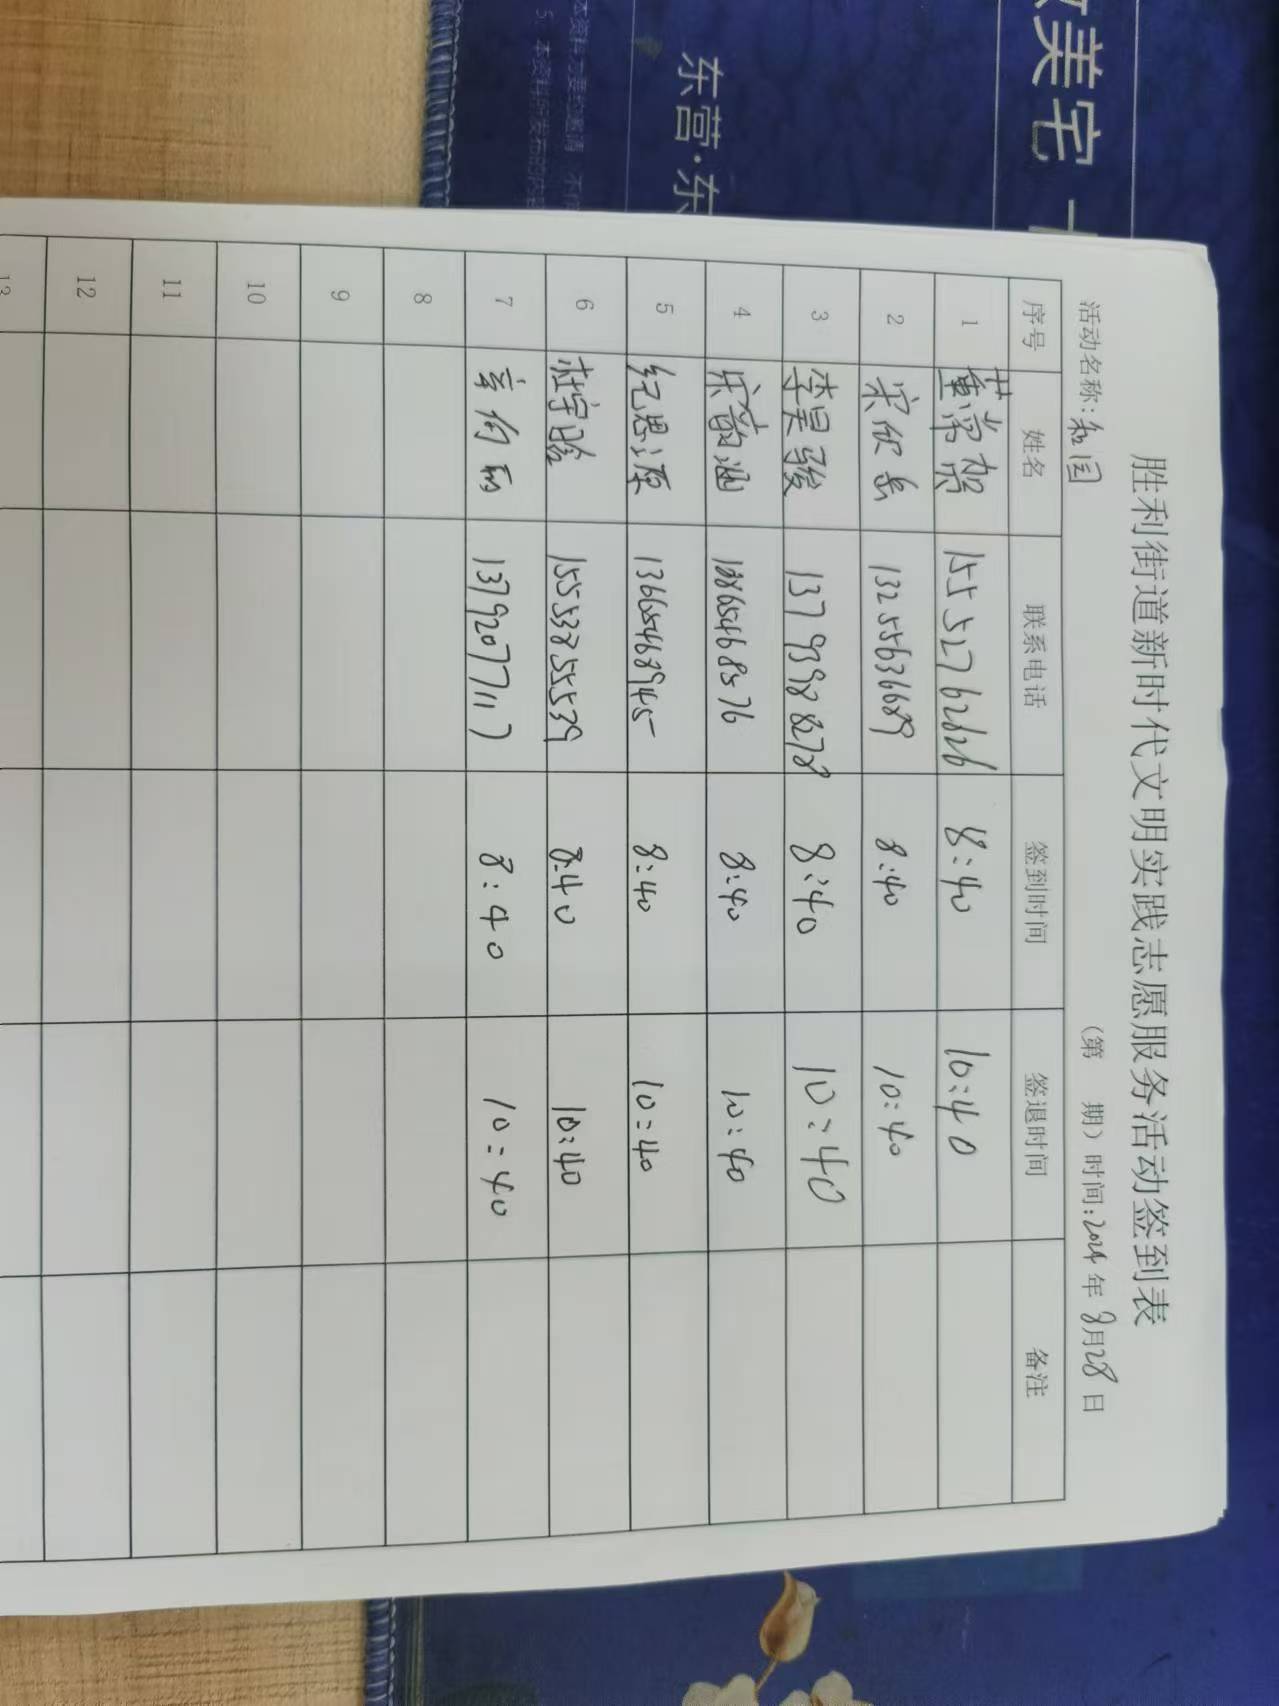 美宅
东营·东
胜利街道新时代文明实践志愿服务活动签到表
活动名称:和园 (第 期) 时间:2024年8月28日
序号 姓名 联系电话 签到时间 签退时间 备注
1 15552762626 8:40 10:40
2 宋欣岳 13255636689 8:40 10:40
3 李昊骏 13793988278 8:40 10:40
4 宋韵涵 18865468576 8:40 10:40
5 纪思源 13665468945 8:40 10:40
6 杜宇晗 15553855539 8:40 10:40
7 13792077117 8:40 10:40
8
9
10
11
12
13